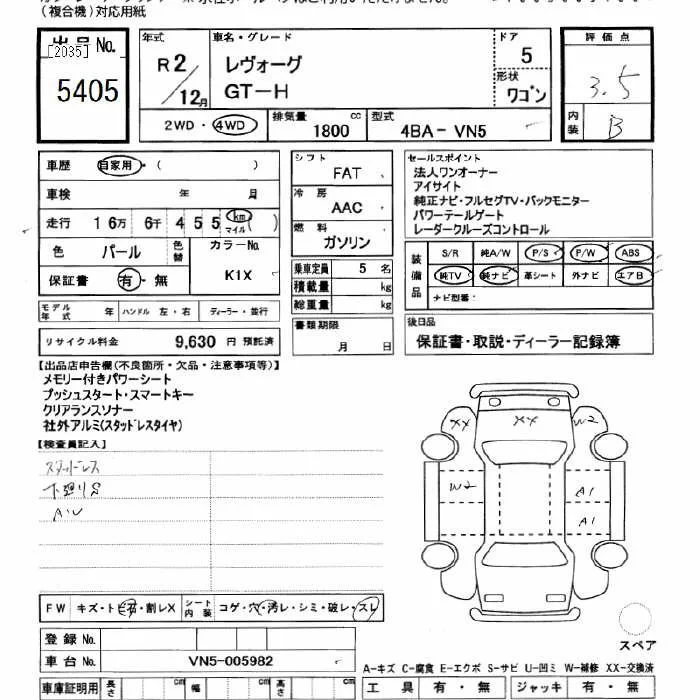 (複合機)対応用紙
出品No.
[2035]
5405
年式
R2/12月
車名・グレード
レヴォーグ
GT-H
ドア
5
形状
ワゴン
評価点
3.5
内装
B
2WD・4WD
排気量
1800 cc
型式
4BA-VN5
車歴 自家用・( )
車検 年 月
走行 16万 6千 455 km マイル
色 パール 色替
カラーNo.
K1X
保証書 有・無
シフト
FAT
冷房
AAC
燃料
ガソリン
乗車定員 5 名
積載量 kg
総重量 kg
書類期限
月 日
セールスポイント
法人ワンオーナー
アイサイト
純正ナビ・フルセグTV・バックモニター
パワーテールゲート
レーダークルーズコントロール
装備品
S/R 純A/W P/S P/W ABS
純TV 純ナビ 革シート 外ナビ エアB
ナビ型番:
モデル年式 年 ハンドル 左・右 ディーラー・並行
リサイクル料金 9,630 円 預託済
後日品
保証書・取説・ディーラー記録簿
【出品店申告欄(不良箇所・欠品・注意事項等)】
メモリー付きパワーシート
プッシュスタート・スマートキー
クリアランスソナー
社外アルミ(スタッドレスタイヤ)
【検査員記入】
スタッドレス
下廻りS
XX
XX
W2
W2
A1
A1
FW キズ・トビ石・割レX
シート内装 コゲ・穴・汚レ・シミ・破レ・スレ
登録No.
車台No. VN5-005982
スペア
A-キズ C-腐食 E-エクボ S-サビ U-凹ミ W-補修 XX-交換済
車庫証明用 長さ cm 幅 cm 高さ cm
工具 有・無 ジャッキ 有・無